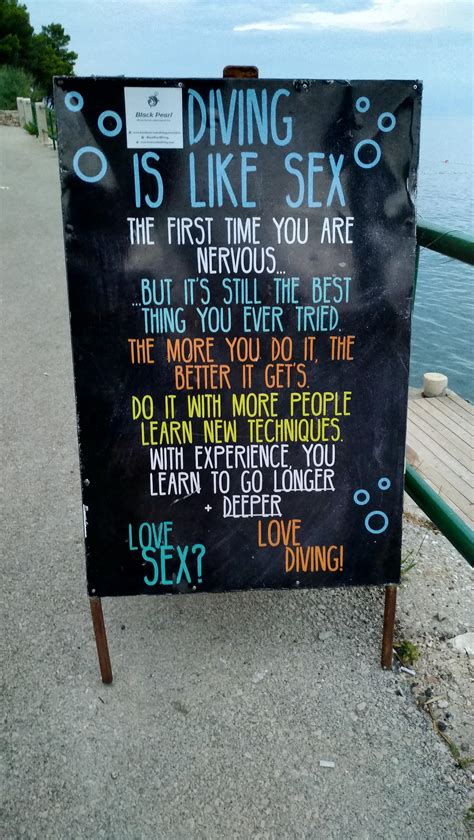 Black Pearl
DIVING
IS LIKE SEX
THE FIRST TIME YOU ARE
NERVOUS...
...BUT IT'S STILL THE BEST
THING YOU EVER TRIED.
THE MORE YOU DO IT, THE
BETTER IT GET'S.
DO IT WITH MORE PEOPLE
LEARN NEW TECHNIQUES.
WITH EXPERIENCE, YOU
LEARN TO GO LONGER
+ DEEPER
LOVE
SEX?
LOVE
DIVING!